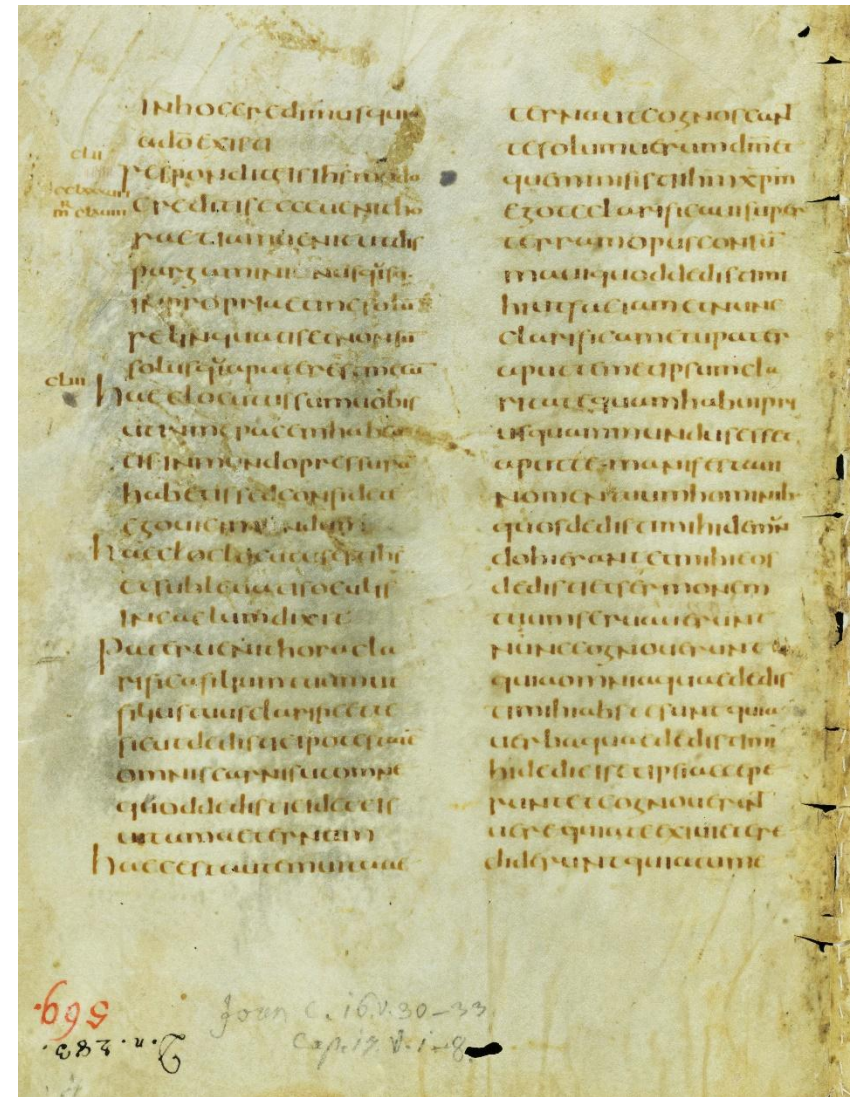 clii
cliii
inhoccredimusquia
adōexisti
responditeisihsmodo
creditiseccehuenitho
raetiamuenitutdis
pargamini
inpropriaetmesolū
relinquatisetnonsū
solusq̄iapaterestmecū
haeclocutussumuobis
utinmepacemhabea
tisinmundopressurā
habetissedconfidete
egouicimundum
haeclocutusestihs
etsubleuatisoculis
incaelumdixit
pateruenithoracla
rificafiliumtuumut
filiustuusclarificette
sicutdedistieipotestatē
omniscarnisutomne
quoddedistieideteis
uitamaeternam
haecestautemuitaae
ternautecognoscant
tesolumuerumdm̄et
quemmisistiihmxpm
egoteclarificauisuper
terramopusconsū
mauiquoddedistimi
hiutfaciametnunc
clarificametupater
aputtemetipsumcla
ritatequamhabuipri
usquammundusesset
aputtemanifestaui
nomentuumhominib
quosdedistimihidemū
dotuierantetmihieos
dedistietsermonem
tuumseruauerunt
nunccognouerunt
quiaomniaquaededis
timihiabstesuntquia
uerbaquaededistimi
hidedieisetipsiaccepe
runtetcognouerunt
uerequiaateexiuietcre
dideruntquiatume
569.
D. n. 283.
Joan c. 16. v. 30-33
Cap. 17. v. 1-8